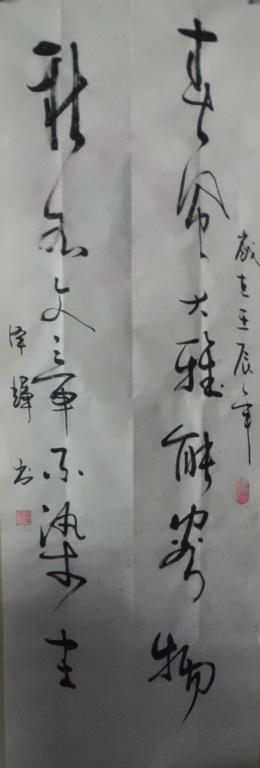 歲在壬辰年
春风大雅能容物
秋水文章不染尘
泽輝书